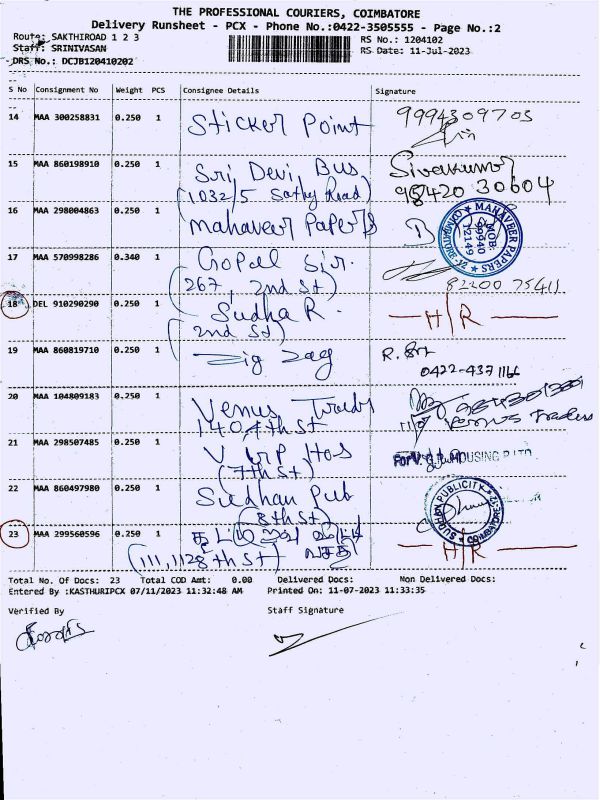 THE PROFESSIONAL COURIERS, COIMBATORE
Delivery Runsheet - PCX - Phone No.:0422-3505555 - Page No.:2
Route: SAKTHIROAD 1 2 3 RS No.: 1204102
Staff: SRINIVASAN RS Date: 11-Jul-2023
DRS No.: DCJB120410202
S No Consignment No Weight PCS Consignee Details Signature
14 MAA 300258831 0.250 1 Sticker Point 9994309703
15 MAA 860198910 0.250 1 Sri Devi Bus Sivakumar
(1032/5 Sathy Road) 98420 30604
16 MAA 298004863 0.250 1 Mahaveer Papers
MAHAVEER PAPERS
MOB: 99940 12149
17 MAA 570998286 0.340 1 Gopal Sir.
(267, 2nd St) 82200 75411
18 DEL 910290290 0.250 1 Sudha R. H/R
2nd St)
19 MAA 860819710 0.250 1 Zig Zag
0422-4371166
20 MAA 104809183 0.250 1 Venus Trads
140, 7th St Venus Traders
21 MAA 298507485 0.250 1 V GP Hos For V.G.P. HOUSING P LTD.
(7th St)
22 MAA 860497980 0.250 1 Sudhan Pub
(8th St)
SUDHAN PUBLICITY COIMBATORE-12
23 MAA 299560596 0.250 1 H/R
(111, 1128th St)
Total No. Of Docs: 23 Total COD Amt: 0.00 Delivered Docs: Non Delivered Docs:
Entered By :KASTHURIPCX 07/11/2023 11:32:48 AM Printed On: 11-07-2023 11:33:35
Verified By Staff Signature